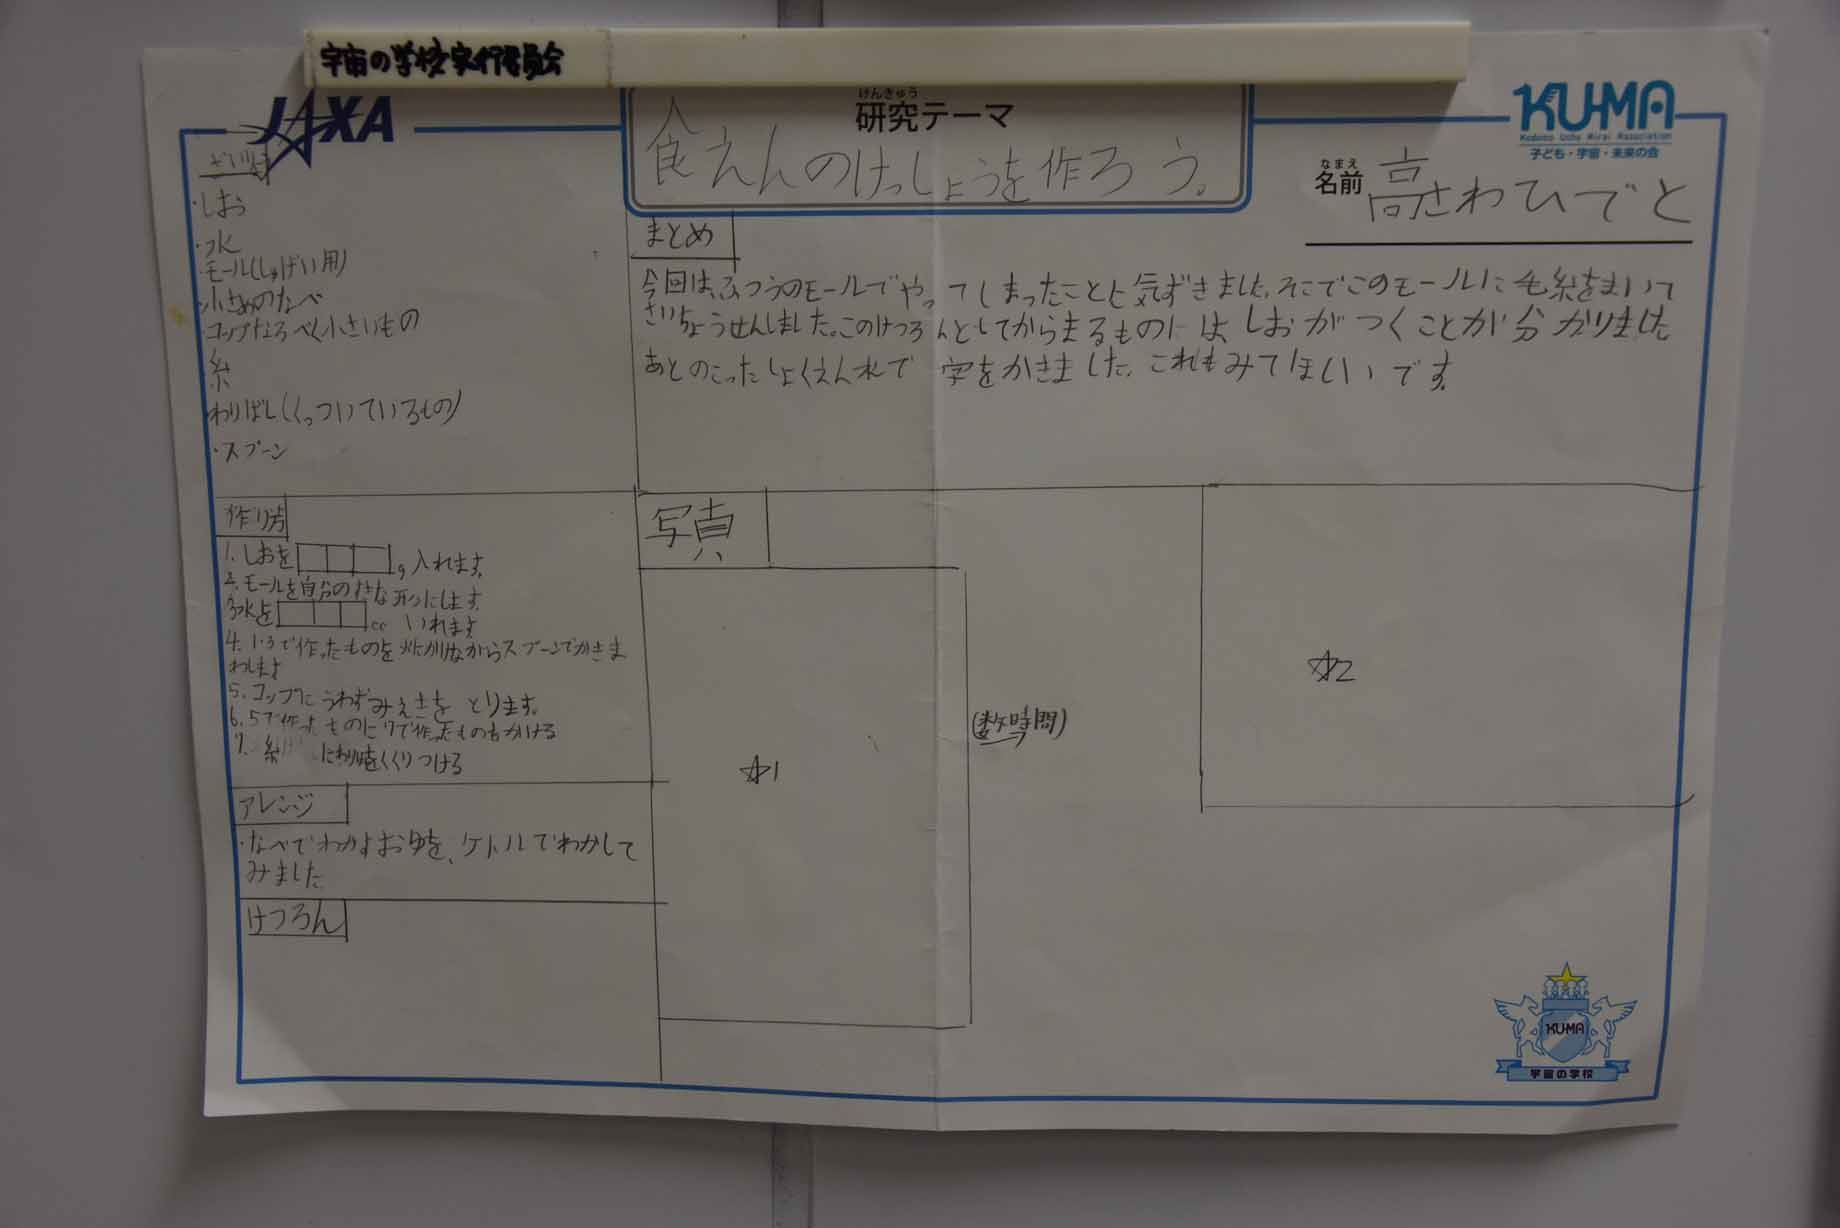 宇宙の学校実行委員会
JAXA
けんきゅう
研究テーマ
食えんのけっしょうを作ろう。
KUMA
Kodomo Uchu Mirai Association
子ども・宇宙・未来の会
なまえ
名前 高さわひでと
ざいりょう
・しお
・水
・モール(しゅげい用)
・小さめのなべ
・コップなるべく小さいもの
・糸
・わりばし(くっついているもの)
・スプーン
まとめ
今回は、ふつうのモールでやってしまったことと気ずきました。そこでこのモールに毛糸をまいて
さいちょうせんしました。このけつろんとしてからまるものには、しおがつくことが分かりました
あとのこったしょくえん水で字をかきました。これもみてほしいです。
作り方
1. しおを g 入れます。
2. モールを自分の好きな形にします。
3. 水を cc いれます
4. 1.3で作ったものを火にかけながらスプーンでかきま
わします
5. コップにうわずみえきをとります。
6. 5で作ったものに7で作ったものをかける
7. 糸 にわり をくくりつける
アレンジ
・なべでわかすおゆを、ケトルでわかして
みました
けつろん
写真
☆1
(数時間)
☆2
KUMA
宇宙の学校